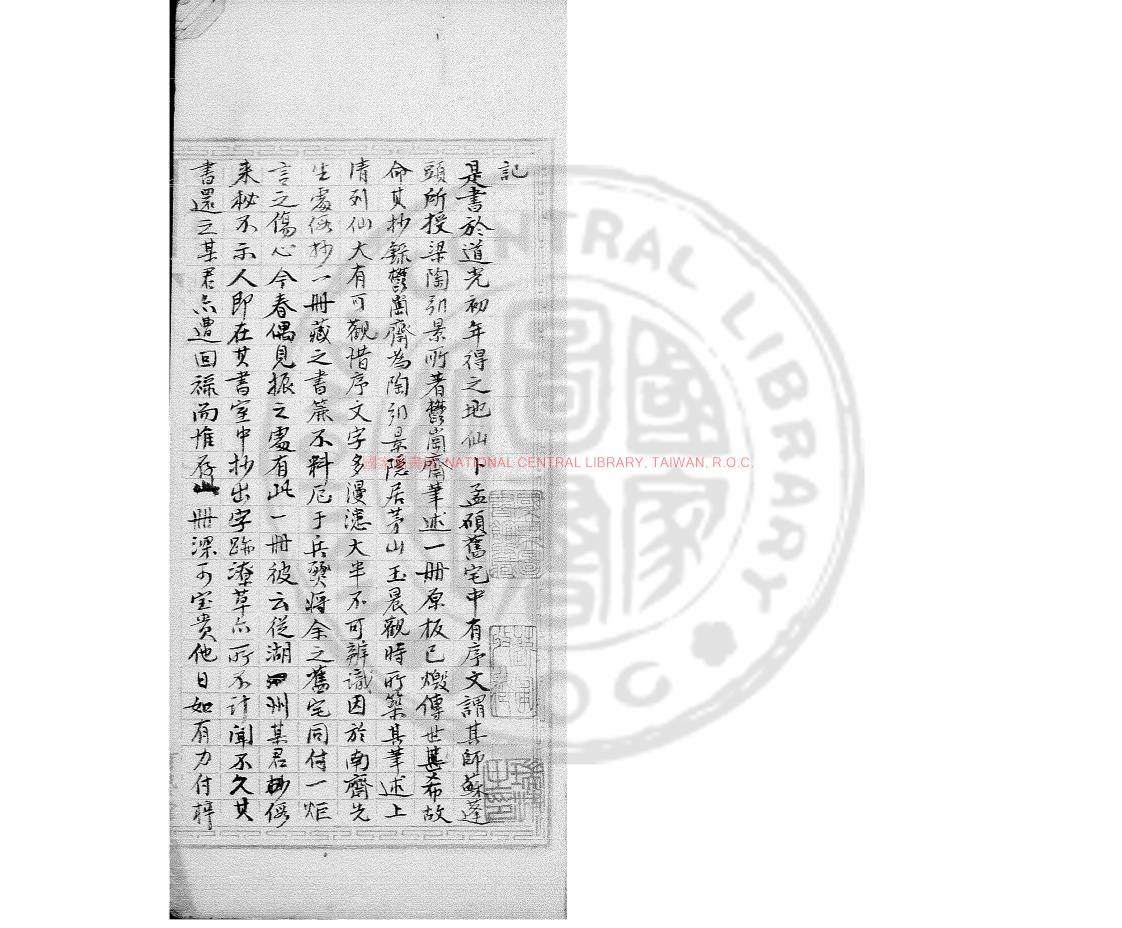 記
是書於道光初年得之地仙卜孟碩舊宅中有序文謂其師蘇蓬
頭所授梁陶弘景所著鬱岡齋筆述一冊原板已燬傳世甚希故
命其抄錄鬱岡齋為陶弘景隱居茅山玉晨觀時所築其筆述上
清列仙大有可觀惜序文字多漫漶大半不可辨識因於南齋先
生處假抄一冊藏之書簏不料厄于兵燹將余之舊宅同付一炬
言之傷心今春偶見振之處有此一冊彼云從湖州某君假
來秘不示人即在其書室中抄出字跡潦草亦所不計聞不久其
書還之某君亦遭回祿而惟存此冊深可宝貴他日如有力付梓
國家圖書館 NATIONAL CENTRAL LIBRARY, TAIWAN, R.O.C.
CENTRAL LIBRARY
R.O.C.